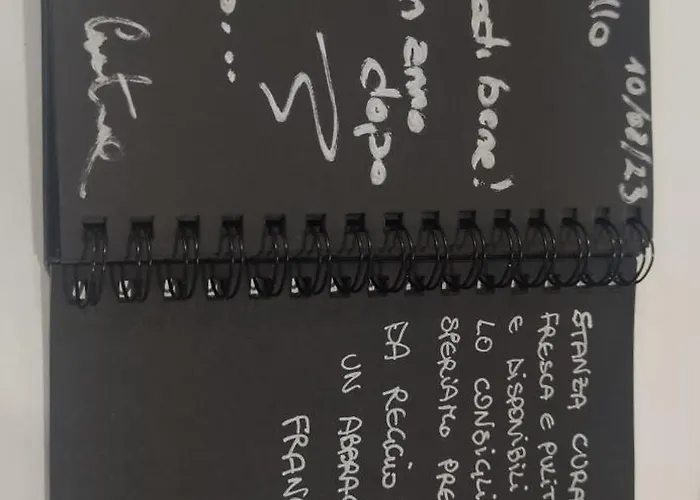 10/02/23
llo
bene!
anno
dopo
...
STANZA CURA
FRESCA E PULIT
E DISPONIBILI
LO CONSIGLI
SPERIAMO PRE
DA REGGIO
UN ABBRAC
FRAN